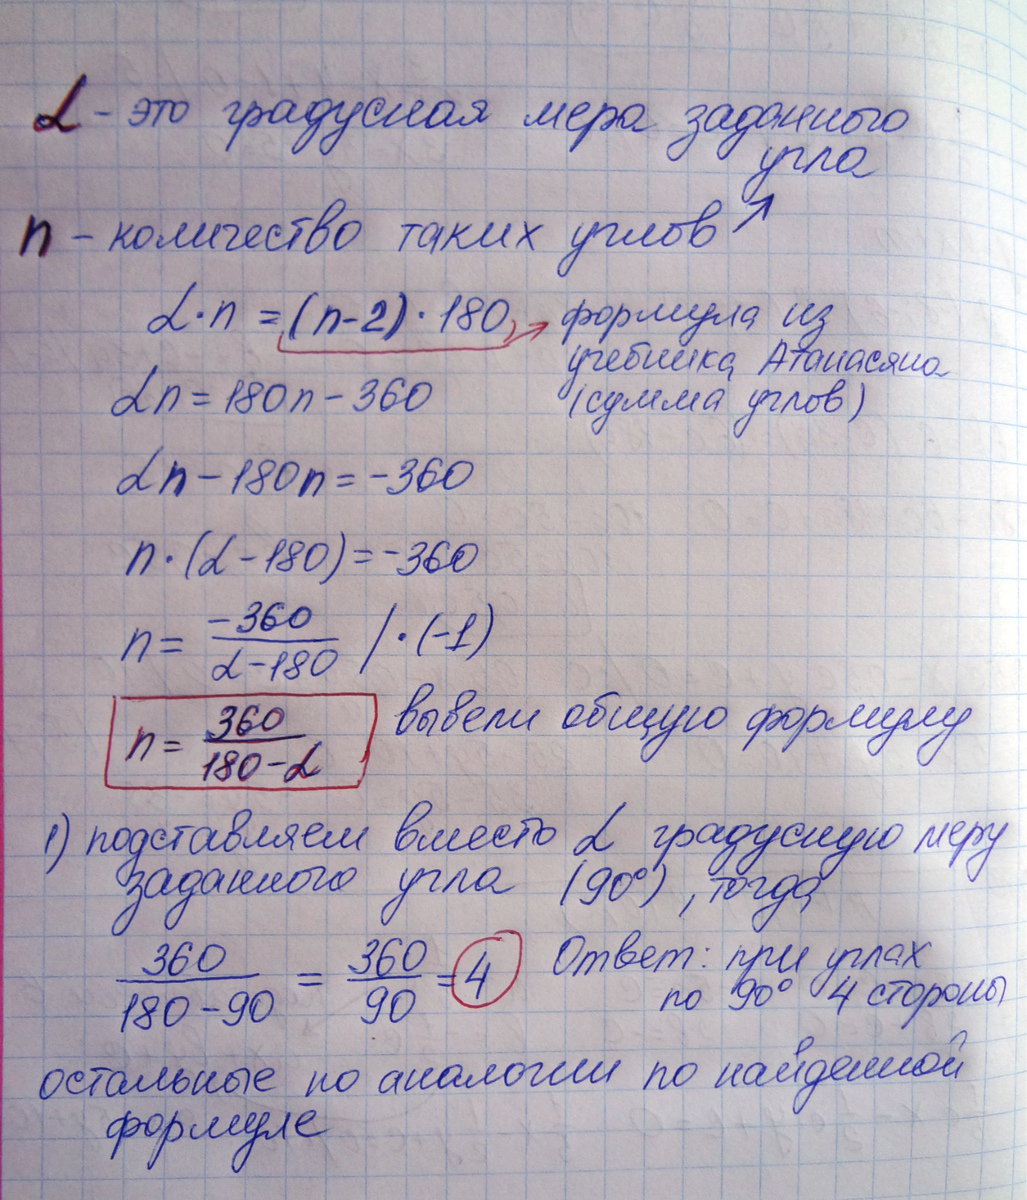 α - это градусная мера заданного
угла
n - количество таких углов ↗
α·n = (n-2)·180 → формула из
учебника Атанасяна
αn = 180n - 360 (сумма углов)
αn - 180n = -360
n·(α - 180) = -360
n = -360/(α-180) /·(-1)
n = 360/(180-α) вывели общую формулу
1) подставляем вместо α градусную меру
заданного угла (90°), тогда
360/(180-90) = 360/90 = 4 Ответ: при углах
по 90° 4 стороны
остальные по аналогии по найденной
формуле